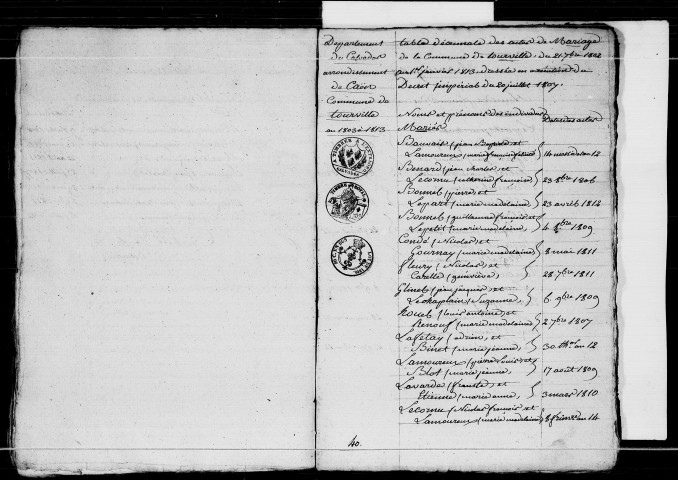 Departement
du Calvados
arrondissement
de Caen
Commune de
tourville
an 1803 à 1813
table décennale des actes de Mariage
de la Commune de tourville, du 21 7bre 1802
au 1er janvier 1813, dressée en exécution du
Decret impérial du 20 juillet 1807.
Noms et prénoms des individus Dates des actes
Mariés
Beauvais (jean Baptiste) et
Lamoureux (marie françoise) } 14 messidor an 12
Benard (jean charles) et
Lecornu (catherine françoise) } 23 8bre 1806
Bonnel (pierre) et
Lepare (marie madelaine) } 23 avril 1812
Bonnel (guillaume françois) et
Lepetit (marie madelaine) } 4 1809
Condé (Nicolas) et
Gournay (marie madelaine) } 8 mai 1811
fleury (Nicolas) et
Carette (geneviève) } 28 7bre 1811
Glinel (jean jacques) et
(Suzanne) } 6 9bre 1809
(louis antoine) et
Renouf (marie madelaine) } 2 7bre 1807
Lafetay (adrien) et
Binet (marie jeanne) } 30 th.or an 12
Lamoureux (pierre Louis) et
Blot (marie jeanne) } 17 août 1809
Lavarde (fauste) et
Etienne (marie anne) } 3 mars 1810
Lecornu (Nicolas françois) et
Lamoureux (marie madelaine) } 8 frimre an 14
40.